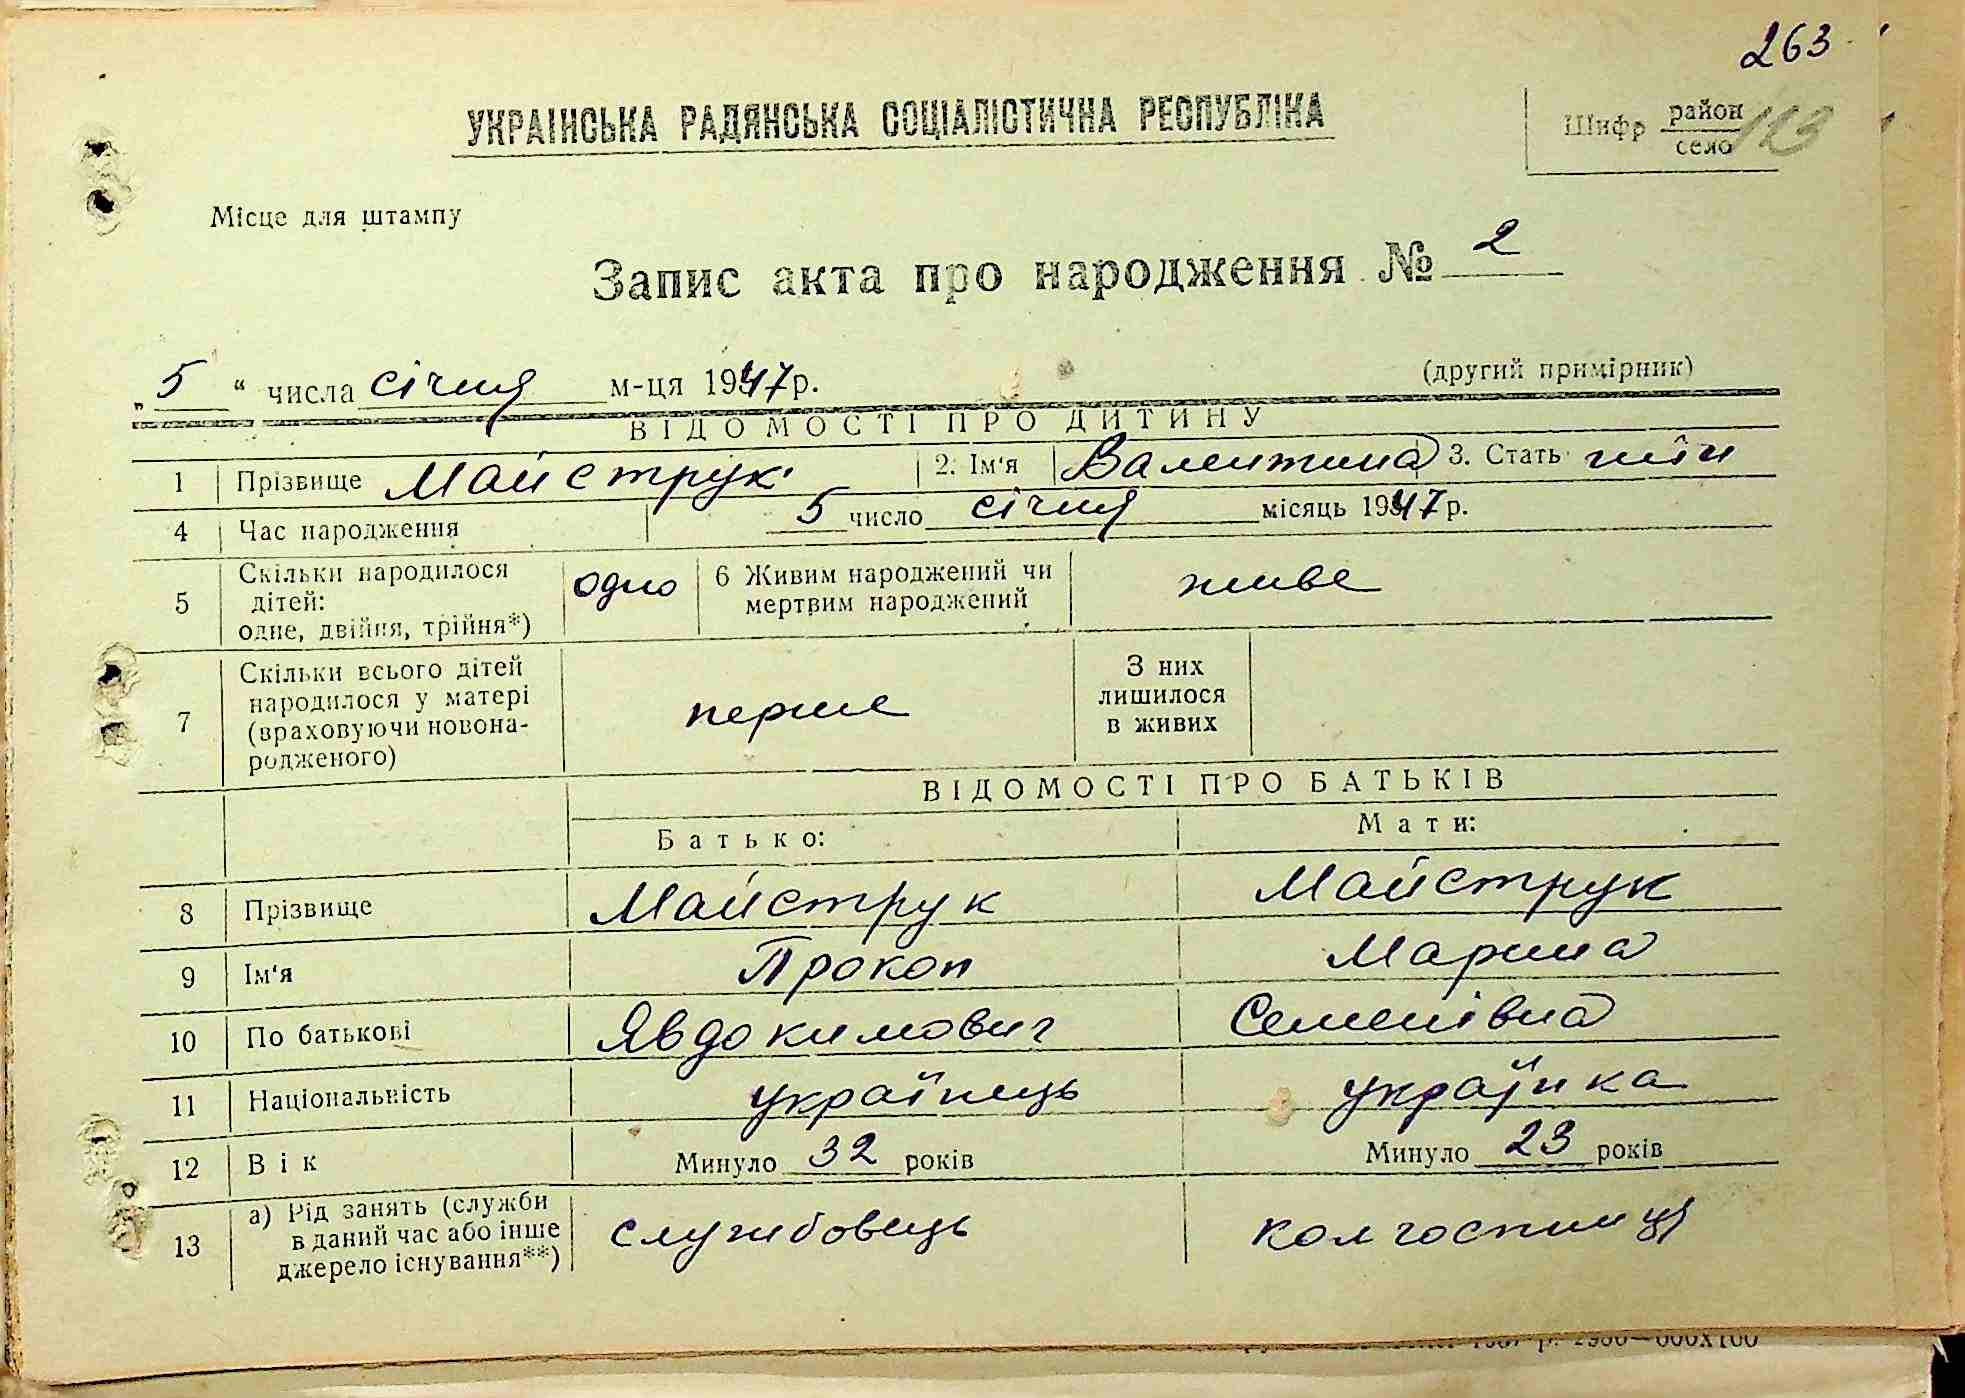 263
УКРАЇНСЬКА РАДЯНСЬКА СОЦІАЛІСТИЧНА РЕСПУБЛІКА
Шифр район
село 113
Місце для штампу
Запис акта про народження № 2
„ 5 “ числа січня м-ця 1947 р.
(другий примірник)
ВІДОМОСТІ ПРО ДИТИНУ
1 Прізвище Майструк 2. Ім'я Валентина 3. Стать жін
4 Час народження 5 число січня місяць 1947 р.
5 Скільки народилося дітей: одне, двійня, трійня*) одно 6 Живим народжений чи мертвим народжений живе
7 Скільки всього дітей народилося у матері (враховуючи новонародженого) перше З них лишилося в живих
ВІДОМОСТІ ПРО БАТЬКІВ
Батько: Мати:
8 Прізвище Майструк Майструк
9 Ім'я Прокоп Марина
10 По батькові Явдокимович Семенівна
11 Національність українець українка
12 Вік Минуло 32 років Минуло 23 років
13 а) Рід занять (служби в даний час або інше джерело існування**) службовець колгоспниця